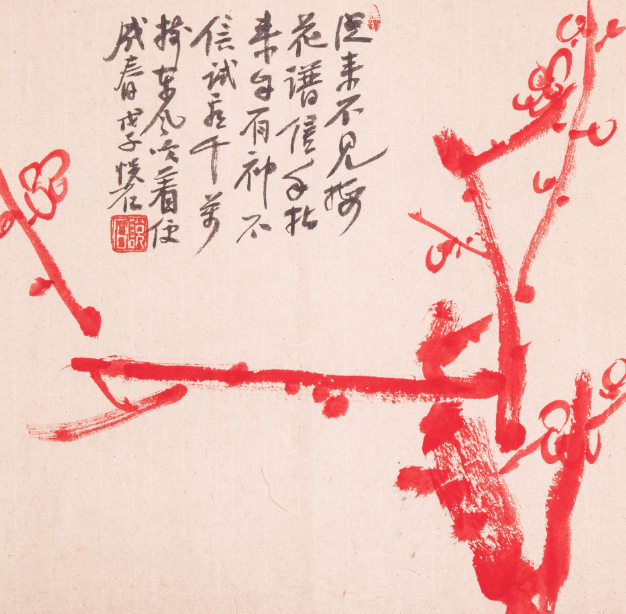 從来不见梅
花谱信手拈
来自有神不
信试看千萬
树东风吹着便
成春 戊子 悦石